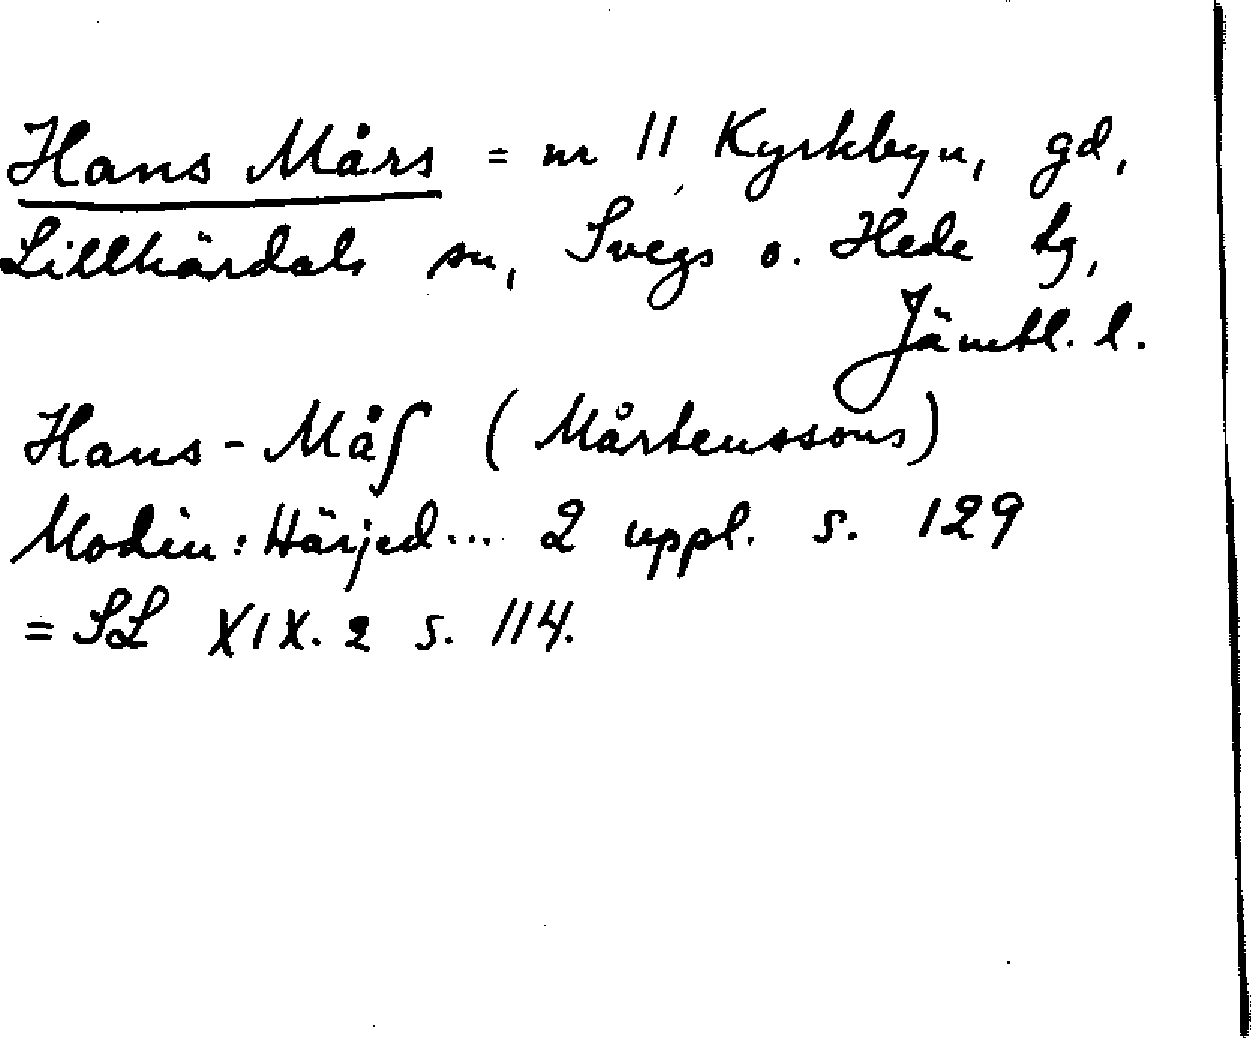 Hans Mårs = nr 11 Kyrkbyn, gd,
Lillhärdals sn, Svegs o. Hede tg,
Jämtl. l.
Hans-Måʃ (Mårtenssons)
Modin: Härjed... 2 uppl. s. 129
= SL XIX. 2 s. 114.